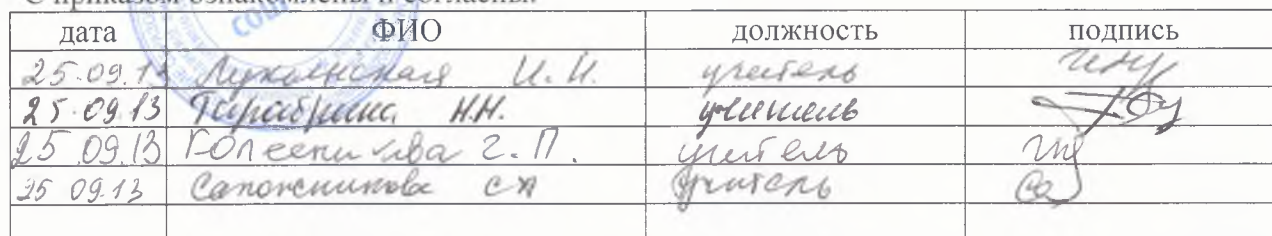 С приказом ознакомлены и согласны.
дата ФИО должность подпись
25.09.13 И.И. учитель
25.09.13 Тарабрина Н.Н. учитель
25.09.13 Г.П. учитель
25 09.13 Сапожникова СА учитель